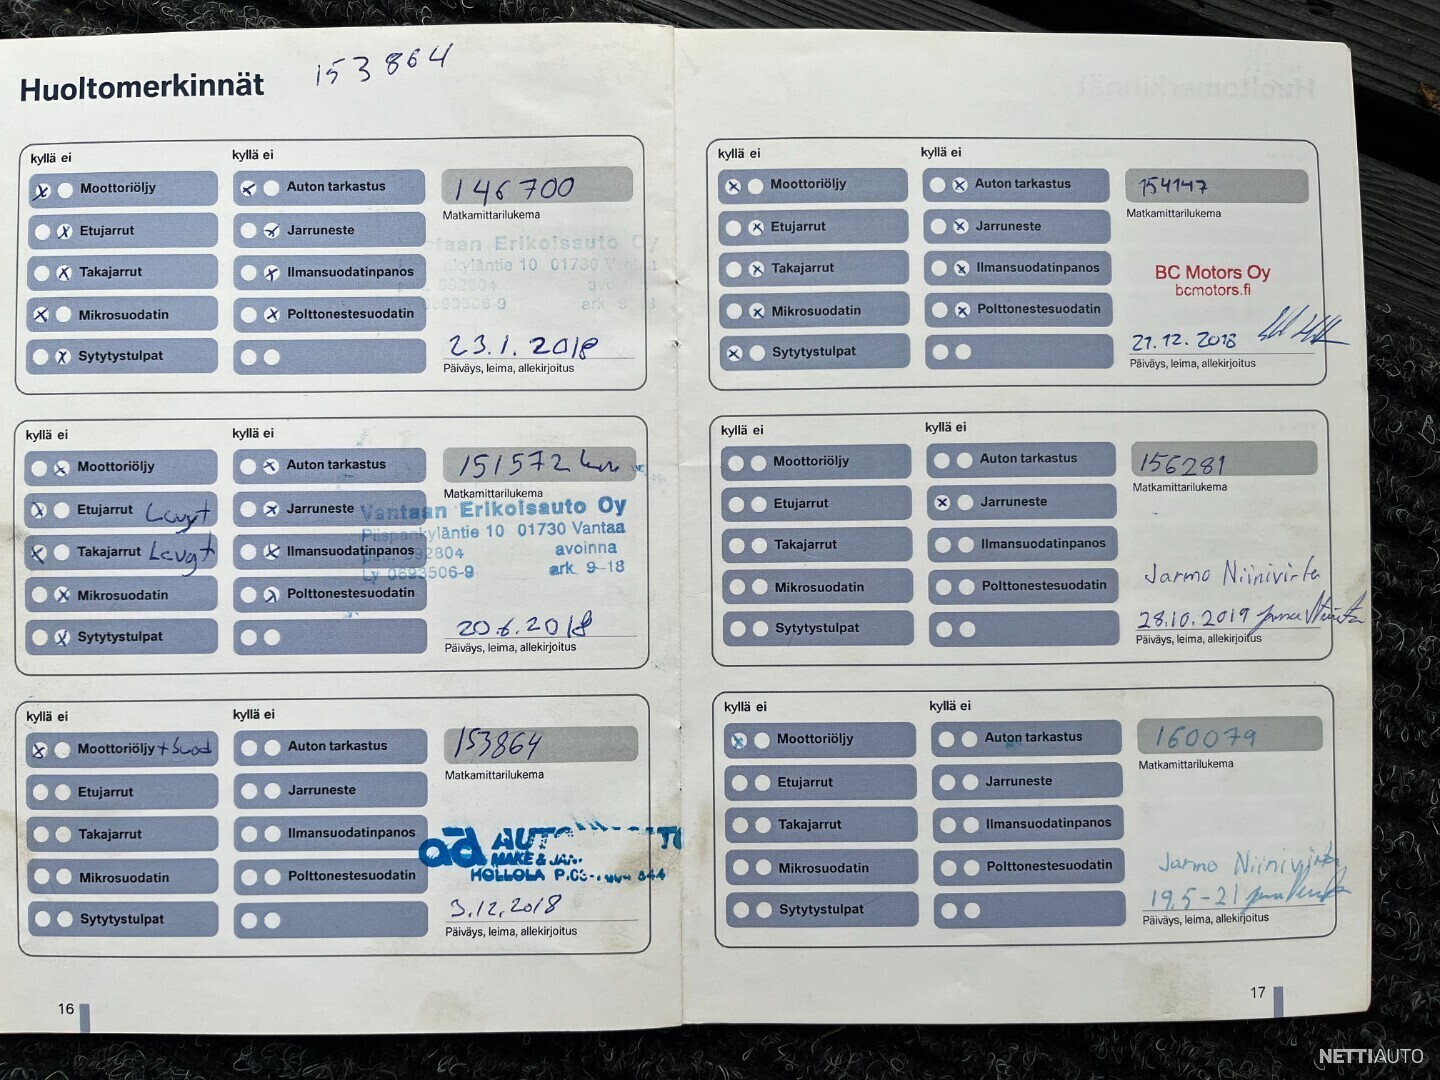 Huoltomerkinnät
153 864
kyllä ei
kyllä ei
Moottoriöljy
Etujarrut
Takajarrut
Mikrosuodatin
Sytytystulpat
Auton tarkastus
Jarruneste
Ilmansuodatinpanos
Polttonestesuodatin
146 700
Matkamittarilukema
Erikoisauto Oy
10 01730
23.1. 2018
Päiväys, leima, allekirjoitus
kyllä ei
kyllä ei
Moottoriöljy
Etujarrut
Takajarrut
Mikrosuodatin
Sytytystulpat
Auton tarkastus
Jarruneste
Ilmansuodatinpanos
Polttonestesuodatin
151572 km
Matkamittarilukema
Vantaan Erikoisauto Oy
Piispankyläntie 10 01730 Vantaa
892804 avoinna
Ly 0693506-9 ark 9-18
20.6.2018
Päiväys, leima, allekirjoitus
kyllä ei
kyllä ei
Moottoriöljy + Suod
Etujarrut
Takajarrut
Mikrosuodatin
Sytytystulpat
Auton tarkastus
Jarruneste
Ilmansuodatinpanos
Polttonestesuodatin
153864
Matkamittarilukema
ad
MAKE &
HOLLOLA
3.12.2018
Päiväys, leima, allekirjoitus
16
kyllä ei
kyllä ei
Moottoriöljy
Etujarrut
Takajarrut
Mikrosuodatin
Sytytystulpat
Auton tarkastus
Jarruneste
Ilmansuodatinpanos
Polttonestesuodatin
154147
Matkamittarilukema
BC Motors Oy
bcmotors.fi
21.12.2018
Päiväys, leima, allekirjoitus
kyllä ei
kyllä ei
Moottoriöljy
Etujarrut
Takajarrut
Mikrosuodatin
Sytytystulpat
Auton tarkastus
Jarruneste
Ilmansuodatinpanos
Polttonestesuodatin
156281
Matkamittarilukema
Jarmo Niinivirta
28.10.2019
Päiväys, leima, allekirjoitus
kyllä ei
kyllä ei
Moottoriöljy
Etujarrut
Takajarrut
Mikrosuodatin
Sytytystulpat
Auton tarkastus
Jarruneste
Ilmansuodatinpanos
Polttonestesuodatin
160079
Matkamittarilukema
Jarmo Niinivirta
19.5-21
Päiväys, leima, allekirjoitus
17
NETTIAUTO